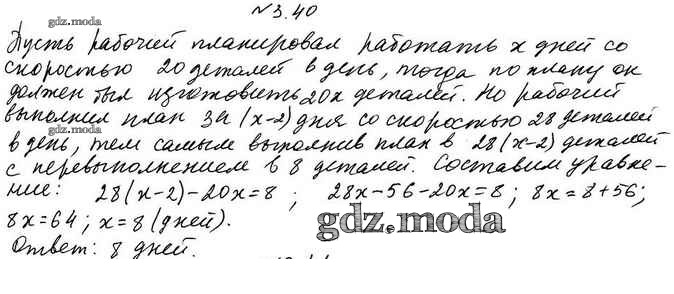 №3.40
gdz.moda
Пусть рабочий планировал работать x дней со
скоростью 20 деталей в день, тогда по плану он
должен был изготовить 20x деталей. Но рабочий
выполнил план за (x-2) дня со скоростью 28 деталей
в день, тем самым выполнив план в 28(x-2) деталей
с перевыполнением в 8 деталей. Составим уравне-
ние: 28(x-2)-20x=8 ; 28x-56-20x=8 ; 8x=8+56;
8x=64 ; x=8 (дней).
gdz.moda
Ответ: 8 дней.
gdz.moda